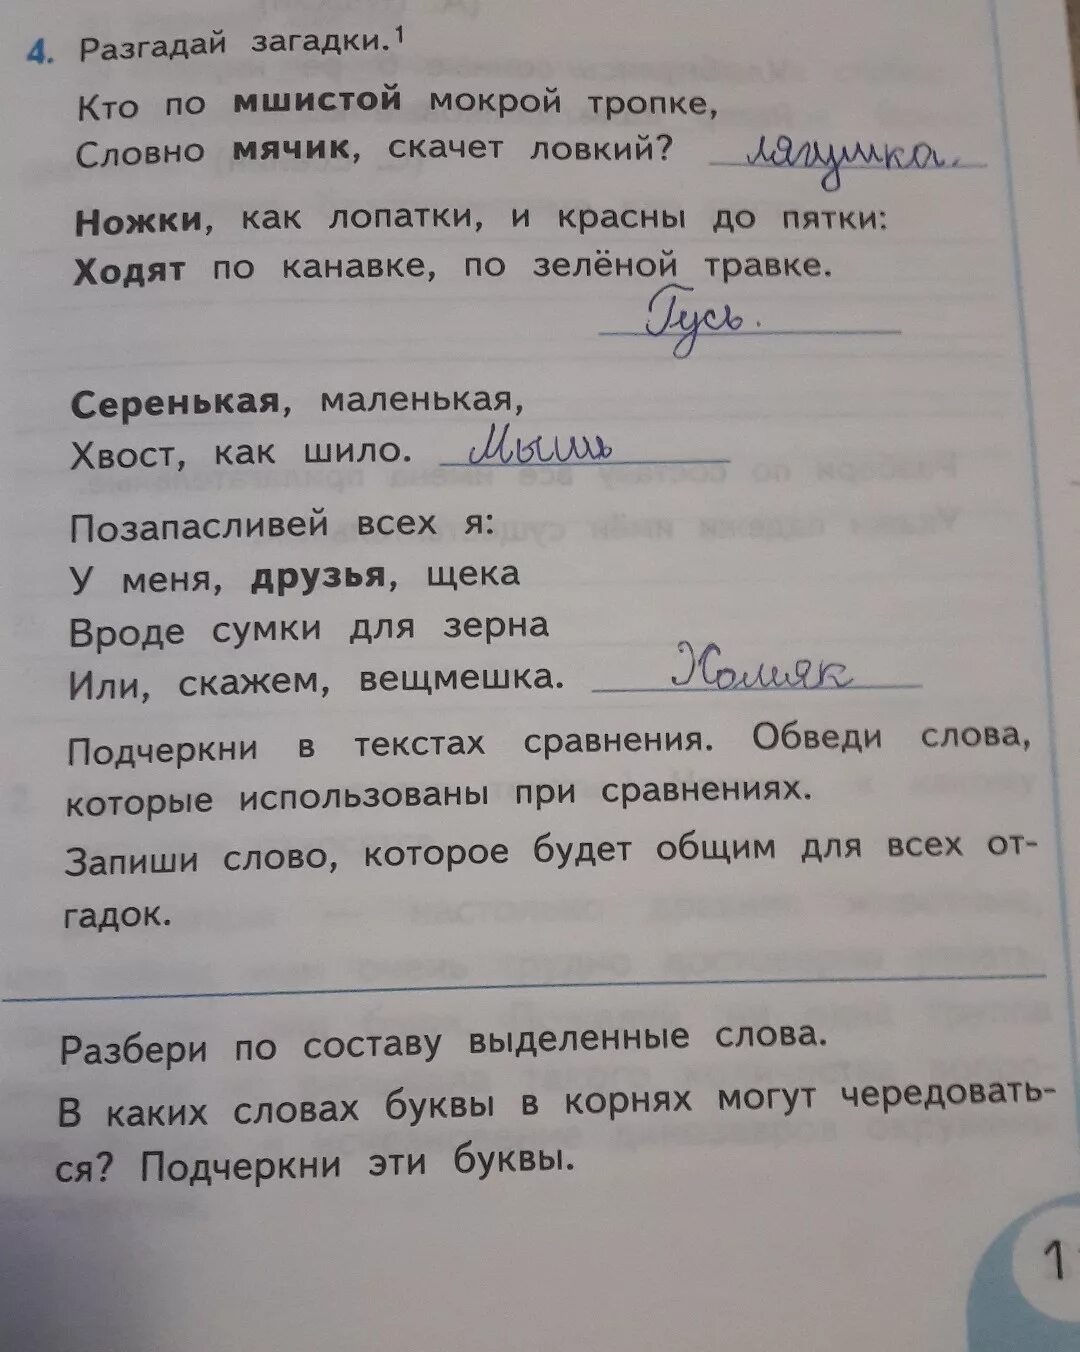 4. Разгадай загадки.¹
Кто по мшистой мокрой тропке,
Словно мячик, скачет ловкий? лягушка.
Ножки, как лопатки, и красны до пятки:
Ходят по канавке, по зелёной травке.
Гусь.
Серенькая, маленькая,
Хвост, как шило. Мышь
Позапасливей всех я:
У меня, друзья, щека
Вроде сумки для зерна
Или, скажем, вещмешка. Хомяк
Подчеркни в текстах сравнения. Обведи слова,
которые использованы при сравнениях.
Запиши слово, которое будет общим для всех от-
гадок.
Разбери по составу выделенные слова.
В каких словах буквы в корнях могут чередовать-
ся? Подчеркни эти буквы.
1